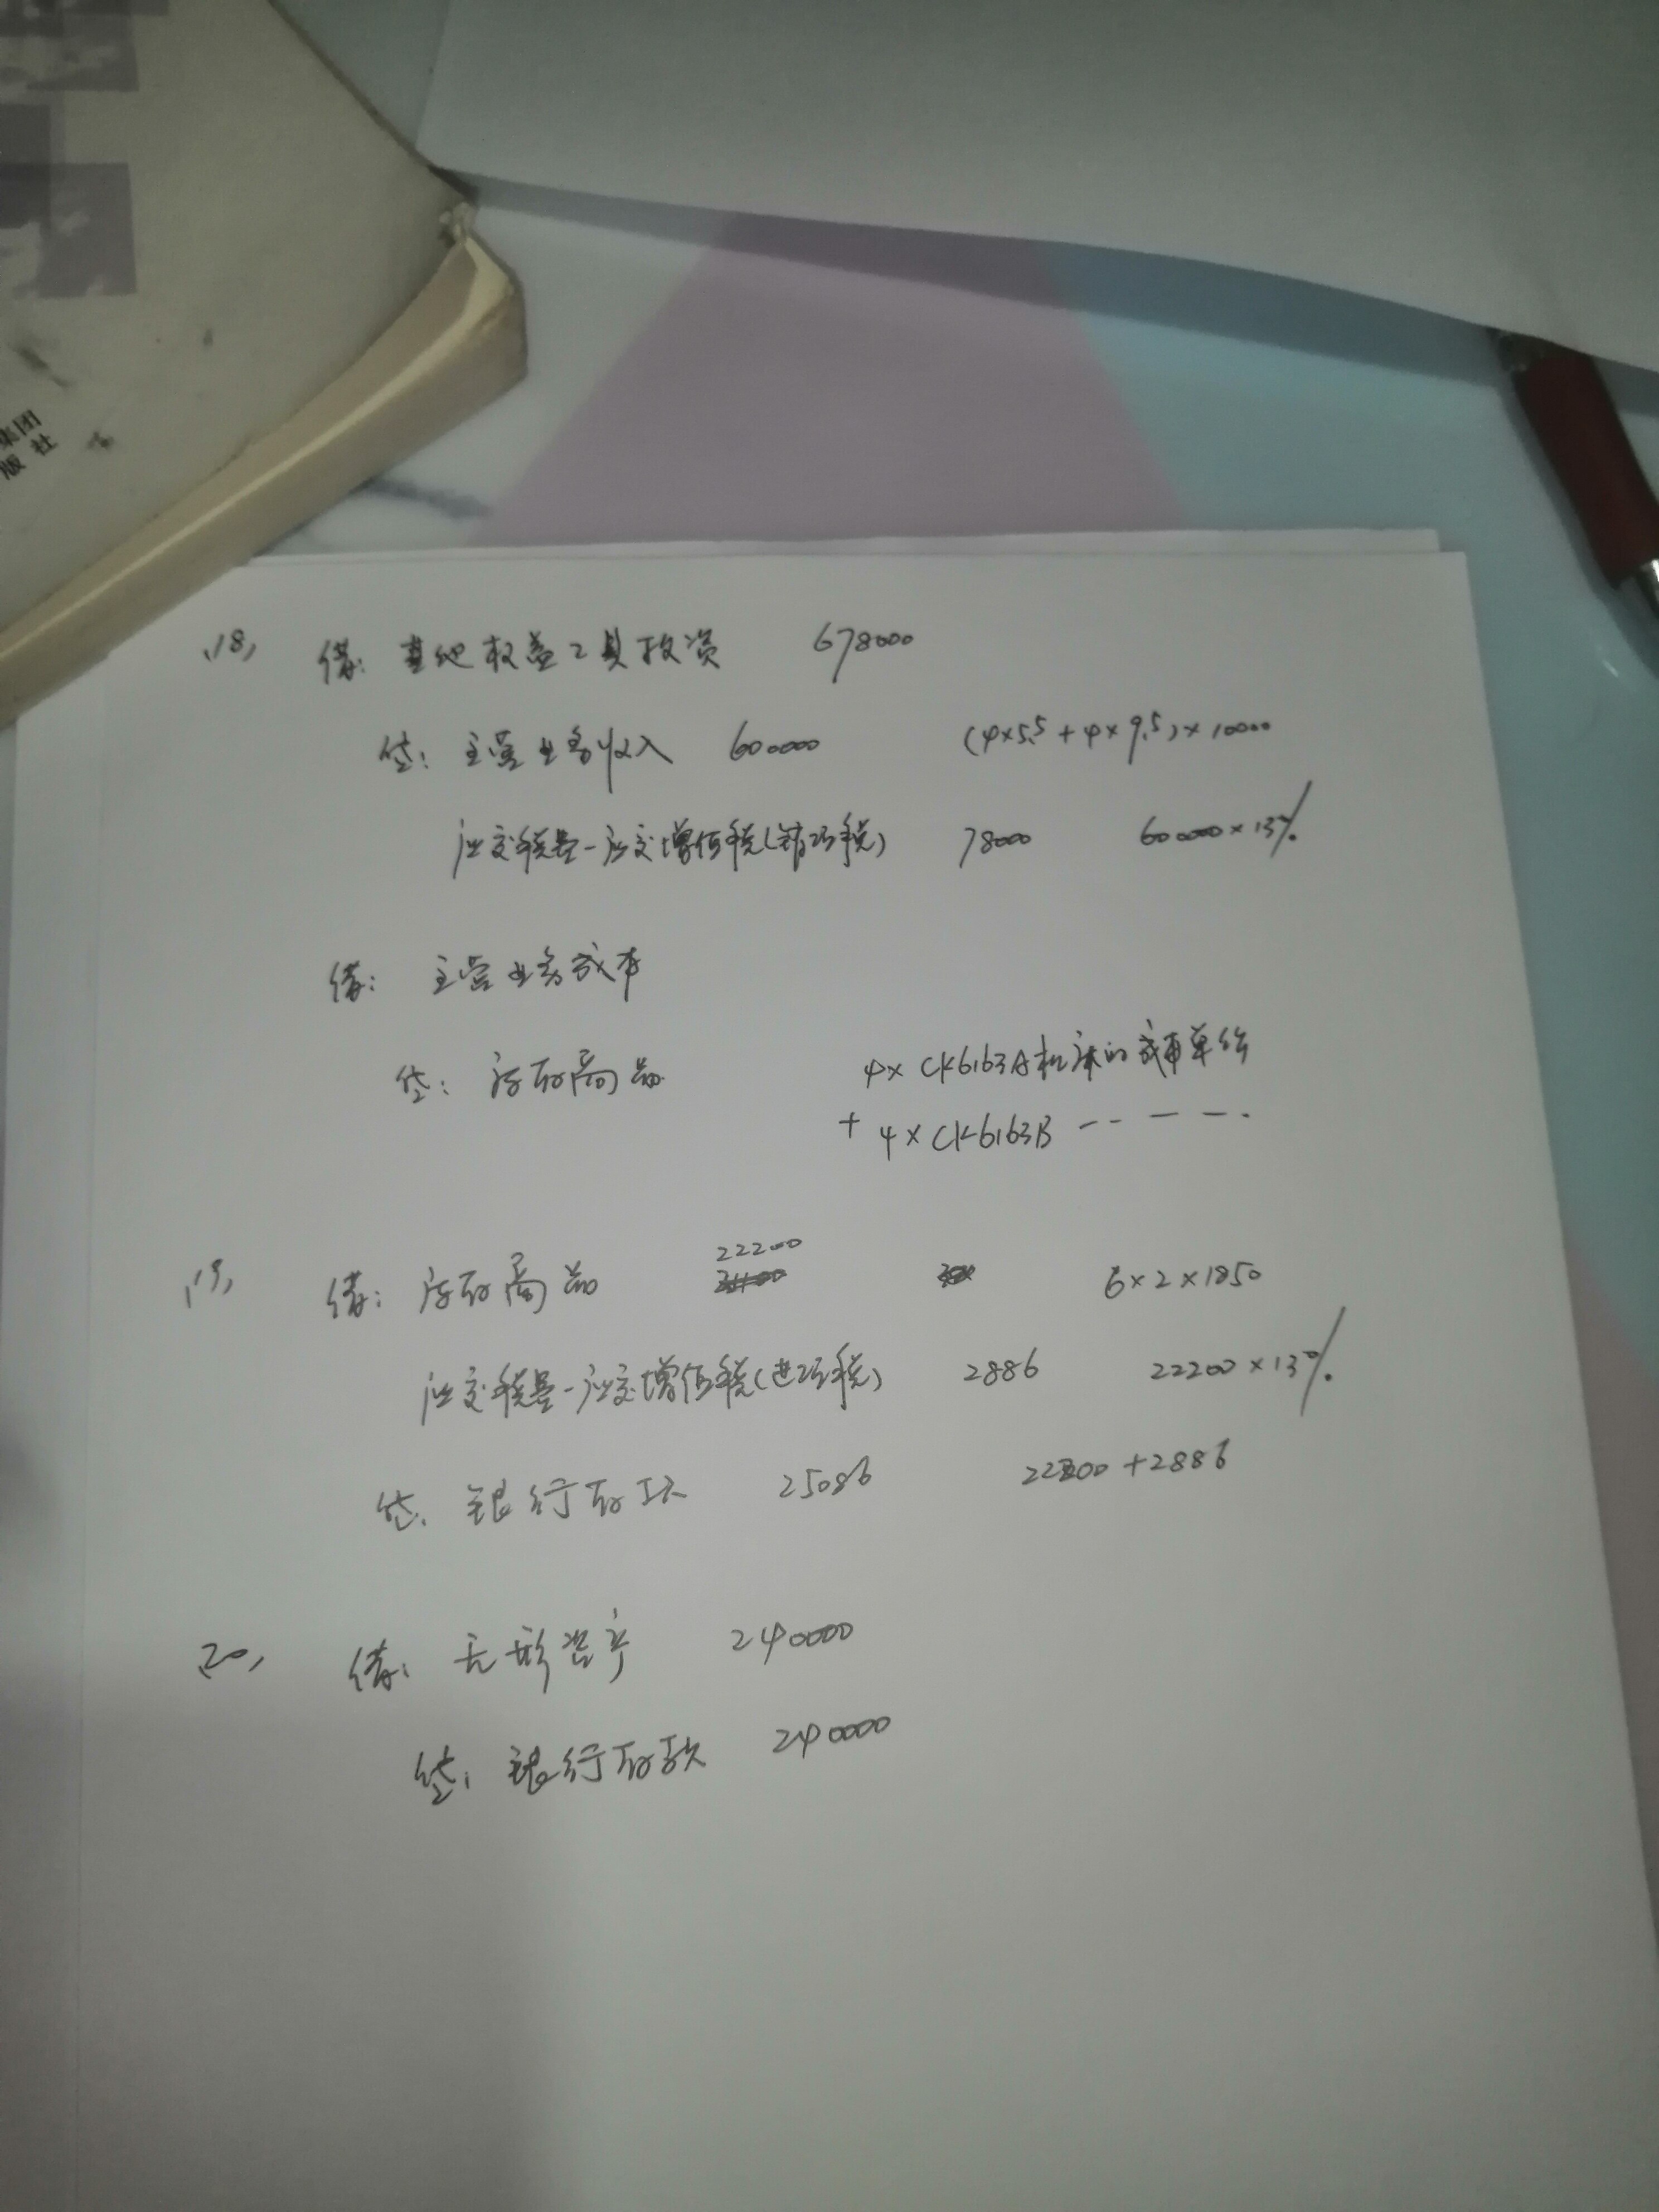 集团
版社
(18) 借: 其他权益工具投资 678000
贷: 主营业务收入 600000 (4×5.5+4×9.5)×10000
应交税费-应交增值税(销项税) 78000 600000×13%
借: 主营业务成本
贷: 库存商品 4×CK6163A机床的成本单价
+4×CK6163B -- — — -.
(19) 借: 库存商品 22200 6×2×1850
应交税费-应交增值税(进项税) 2886 22200×13%
贷: 银行存款 25086 22200+2886
(20) 借: 无形资产 240000
贷: 银行存款 240000